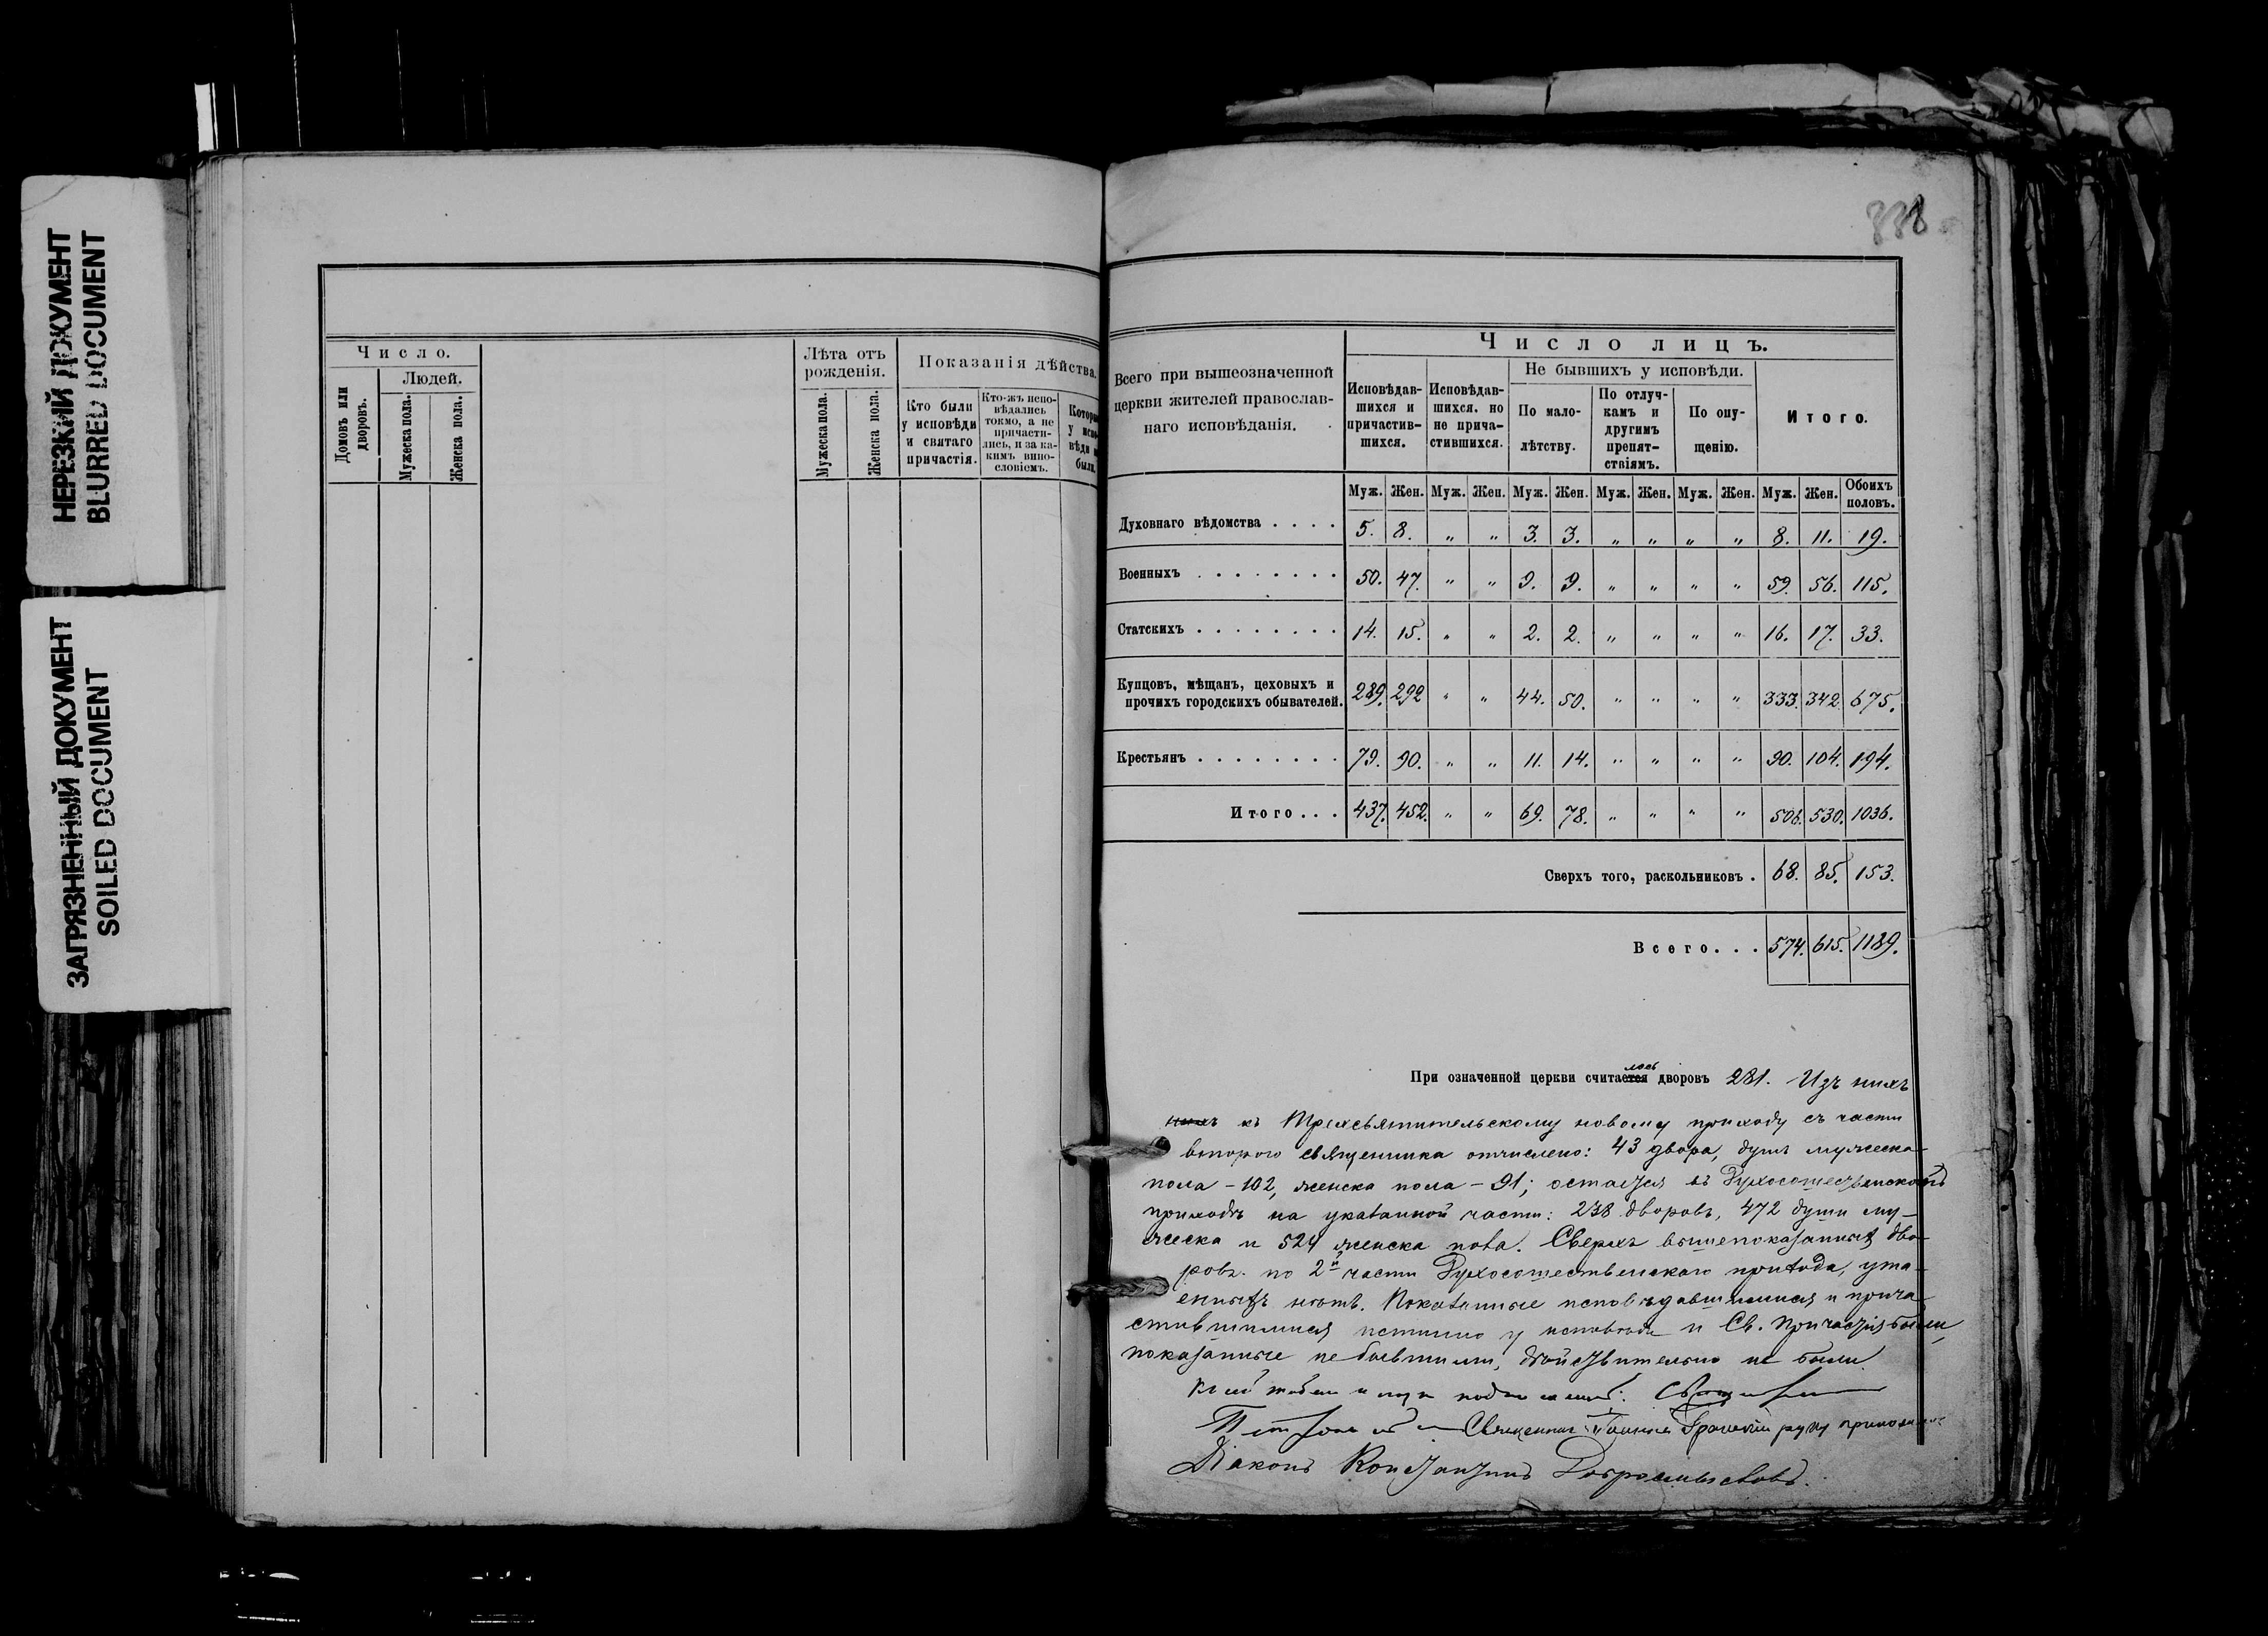 НЕРЕЗКИЙ ДОКУМЕНТ
BLURRED DOCUMENT
ЗАГРЯЗНЕННЫЙ ДОКУМЕНТ
SOILED DOCUMENT
Число.
Домовъ или дворовъ.
Людей.
Мужеска пола.
Женска пола.
Лѣта отъ рожденія.
Мужеска пола.
Женска пола.
Показанія дѣйства.
Кто были у исповѣди и святаго причастія.
Кто-жъ исповѣдались токмо, а не причастились, и за какимъ винословіемъ.
у
были.
Всего при вышеозначенной
церкви жителей православ-
наго исповѣданія.
Число лицъ.
Исповѣдав-шихся и причастив-шихся.
Исповѣдав-шихся. но не прича-стившихся.
Не бывшихъ у исповѣди.
По мало-лѣтству.
По отлуч-камъ и другимъ препят-ствіямъ.
По опу-щенію.
Итого.
Муж. Жен. Муж. Жен. Муж. Жен. Муж. Жен. Муж. Жен. Муж. Жен. Обоихъ половъ.
Духовнаго вѣдомства . . . . 5. 8. „ „ 3. 3. „ „ „ „ 8. 11. 19.
Военныхъ . . . . . . . . 50. 47. „ „ 9. 9. „ „ „ „ 59. 56. 115.
Статскихъ . . . . . . . . 14. 15. „ „ 2. 2. „ „ „ „ 16. 17. 33.
Купцовъ, мѣщанъ, цеховыхъ и
прочихъ городскихъ обывателей. 289. 292 „ „ 44. 50. „ „ „ „ 333. 342. 675.
Крестьянъ . . . . . . . . 79. 90. „ „ 11. 14. „ „ „ „ 90. 104. 194.
Итого . . . 437. 452. „ „ 69. 78. „ „ „ „ 506. 530. 1036.
Сверхъ того, раскольниковъ . 68. 85. 153.
Всего . . . 574. 615. 1189.
При означенной церкви считается лось дворовъ 281. Изъ нихъ
нихъ къ Трехсвятительскому новому приходу съ части
второго священника отчислено: 43 двора, душъ мужеска
пола – 102, женска пола – 91; остается въ Духосошественскомъ
приходѣ на указанной части: 238 дворовъ, 472 души му-
жеска и 524 женска пола. Сверхъ вышепоказанныхъ дво-
ровъ по 2й части Духосошественскаго прихода, ута-
енныхъ нѣтъ. Показанные исповѣдавшимися и прича-
стившимися истинно у исповѣди и Св. Причастія были,
показанные не бывшими, дѣйствительно не были.
Священникъ
Священникъ руку приложилъ
Діаконъ Константинъ Добромысловъ.